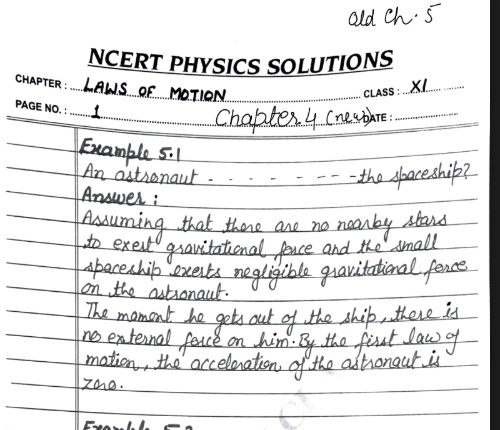 old Ch. 5
NCERT PHYSICS SOLUTIONS
CHAPTER : LAWS OF MOTION CLASS : XI
PAGE NO. : 1 Chapter 4 (new) DATE :
Example 5.1
An astronaut - - - - - - - the spaceship?
Answer :
Assuming that there are no nearby stars
to exert gravitational force and the small
spaceship exerts negligible gravitational force
on the astronaut.
The moment he gets out of the ship, there is
no external force on him. By the first law of
motion, the acceleration of the astronaut is
zero.